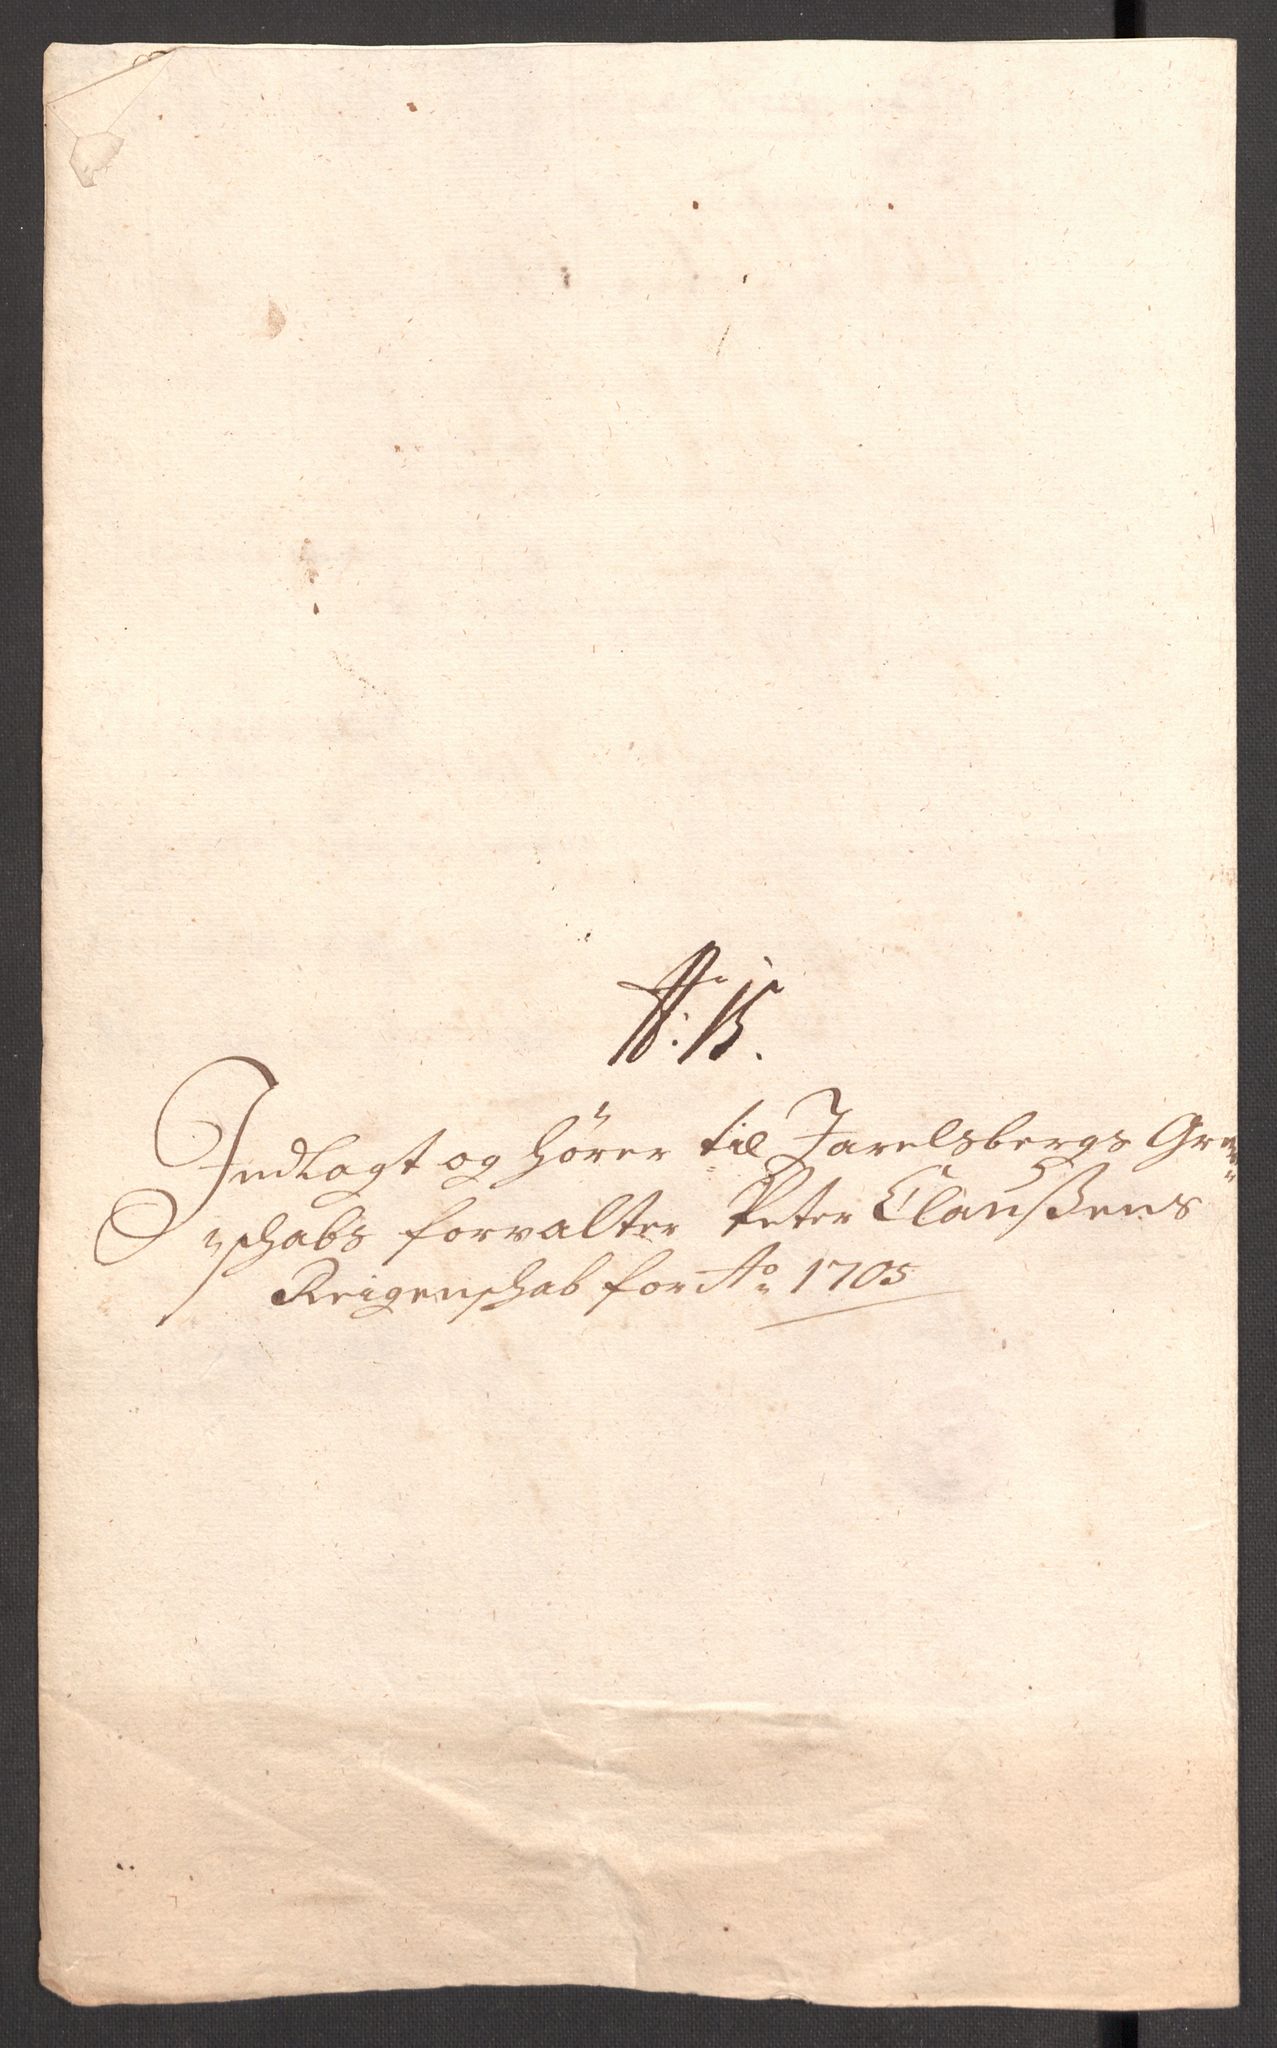 N: 15.
Indlagt og hører til Jarelsbergs Grev=
=schabs forvalter Peter Claußens
Reigenschab for Ao 1705